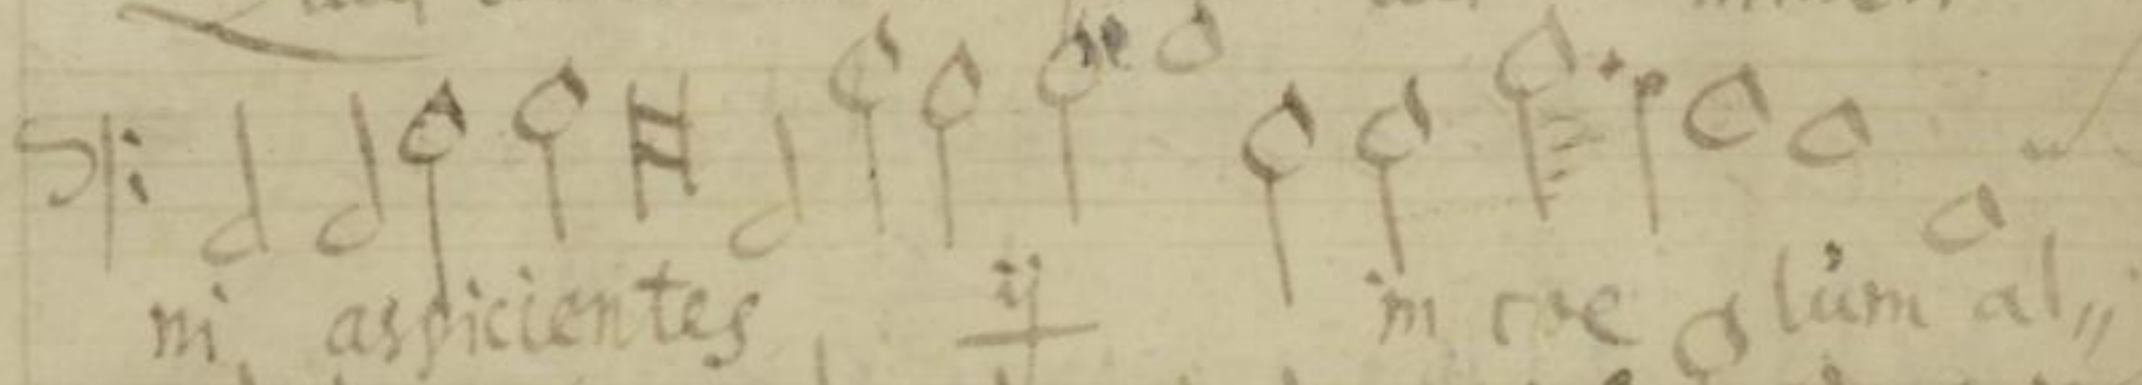 ni aspicientes ij in coe lum al„